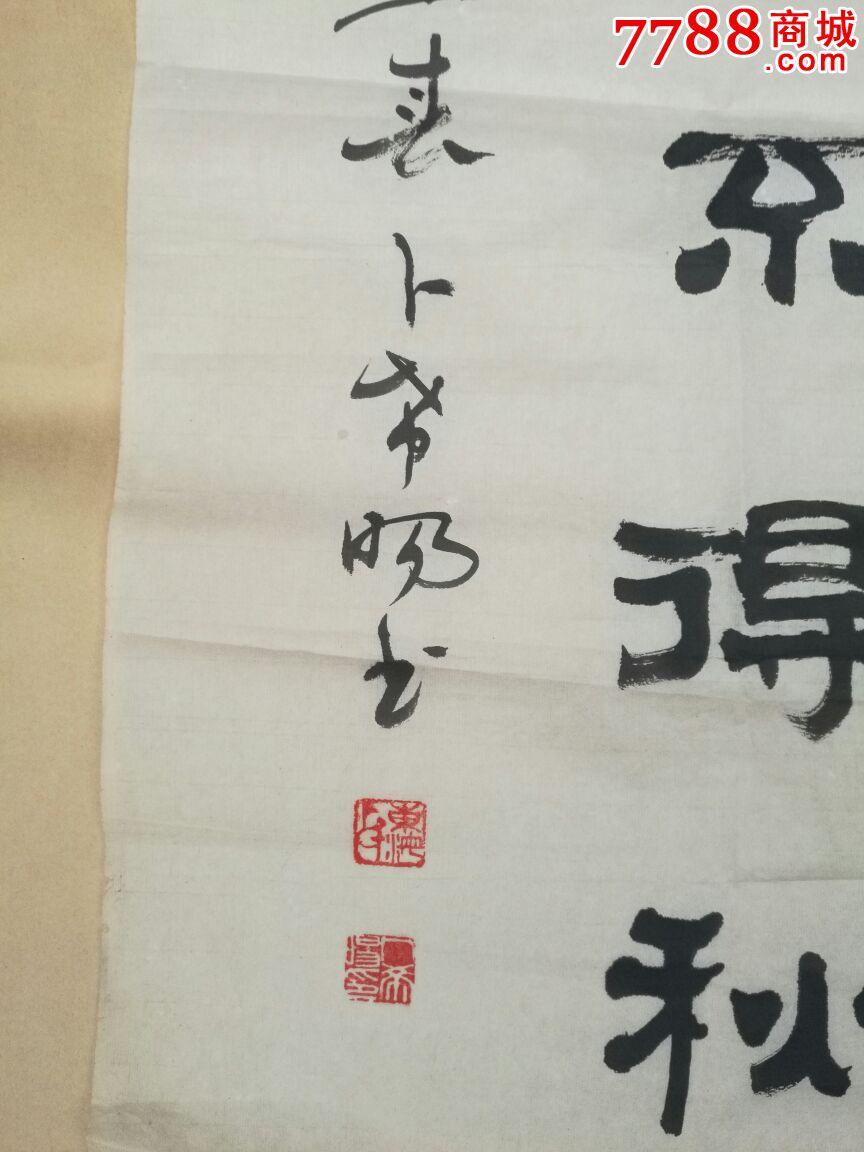 7788商城
.com
不得秋
春卜希旸书